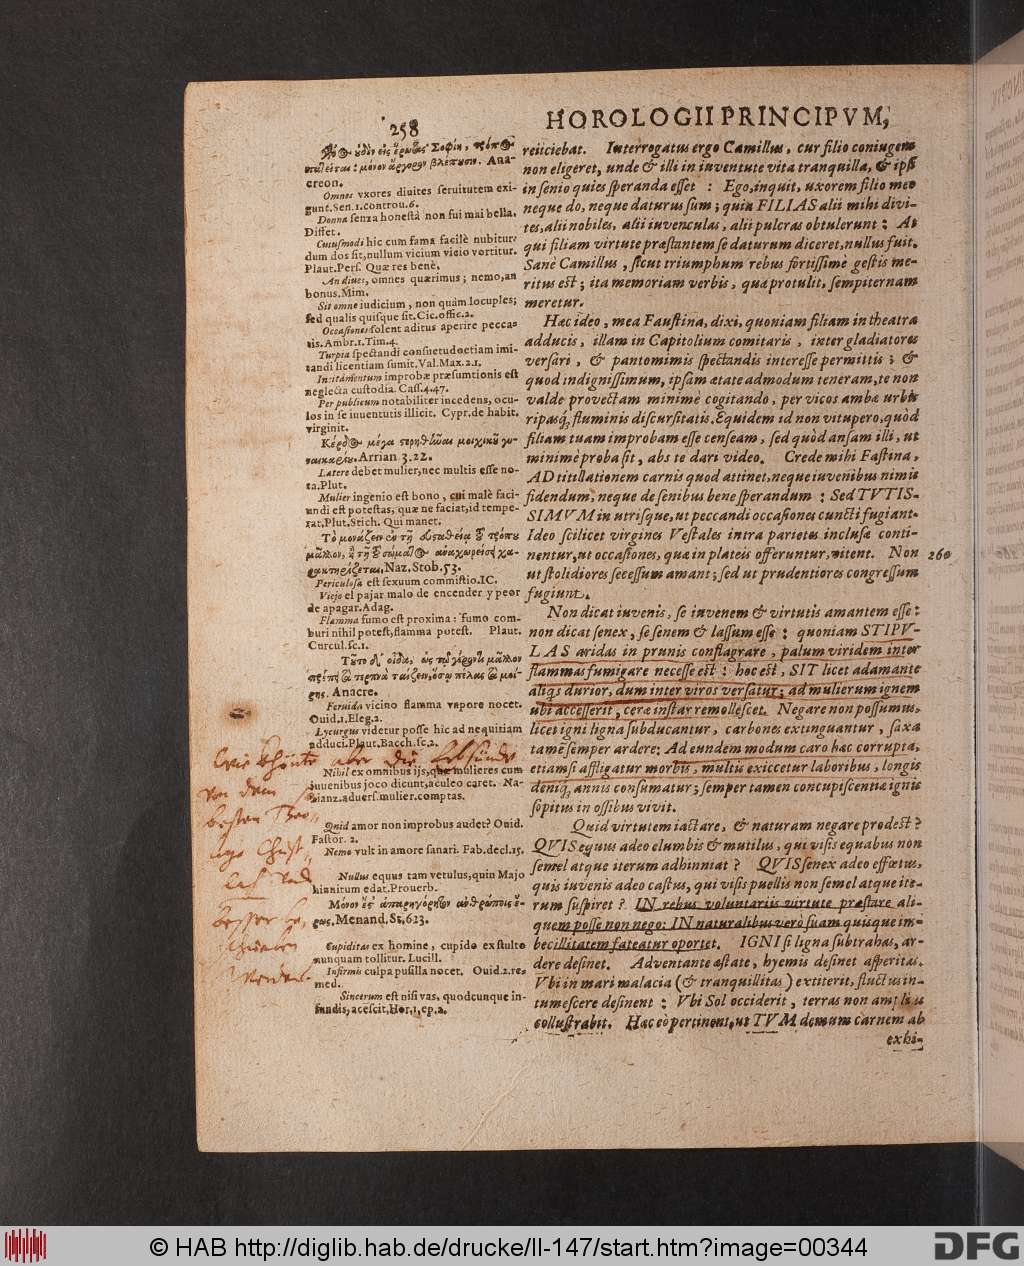 258
HOROLOGII PRINCIPVM,
creon.
Omnes vxores diuites seruitutem exi-
gunt. Sen. 1. controu. 6.
Donna senza honestà non fui mai bella.
Diffet.
Cuiusmodi hic cum fama facilè nubitur?
dum dos sit, nullum vicium vicio vortitur.
Plaut. Pers. Quæ res benè.
An diues, omnes quærimus; nemo, an
bonus. Mim.
Sit omne iudicium, non quàm locuples;
sed qualis quisque sit. Cic. offic. 2.
Occasiones solent aditus aperire pecca-
tis. Ambr. 1. Tim. 4.
Turpia spectandi consuetudo etiam imi-
tandi licentiam sumit. Val. Max. 2. 1.
Incitamentum improbæ præsumtionis est
neglecta custodia. Cass. 4. 47.
Per publicum notabiliter incedens, ocu-
los in se iuuentutis illicit. Cypr. de habit.
virginit.
Arrian 3. 22.
Latere debet mulier, nec multis esse no-
ta. Plut.
Mulier ingenio est bono, cui malè faci-
undi est potestas, quæ ne faciat, id tempe-
rat, Plut. Stich. Qui manet.
Naz. Stob. 53.
Periculosa est sexuum commistio. IC.
Viejo el pajar malo de encender y peor
de apagar. Adag.
Flamma fumo est proxima: fumo com-
buri nihil potest, flamma potest. Plaut.
Curcul. sc. 1.
Anacre.
Feruida vicino flamma vapore nocet.
Ouid. 1. Eleg. 2.
Lycurgus videtur posse hic ad nequitiam
adduci. Plaut. Bacch. sc. 2.
Nihil ex omnibus ijs, quæ mulieres cum
iuuenibus joco dicunt, aculeo caret. Na-
zianz. aduers. mulier. comptas.
Quid amor non improbus audet? Ouid.
Fastor. 2.
Nemo vult in amore sanari. Fab. decl. 15.
Nullus equus tam vetulus, quin Majo
hinnitum edat. Prouerb.
Menand. St. 623.
Cupiditas ex homine, cupido ex stulto
nunquam tollitur. Lucill.
Infirmis culpa pusilla nocet. Ouid. 2. re-
med.
Sincerum est nisi vas, quodcunque in-
fundis, acescit, Hor. 1, ep. 2.
reiiciebat. Interrogatus ergo Camillus, cur filio coniugem
non eligeret, unde & illi in iuventute vita tranquilla, & ipsi
in senio quies speranda esset: Ego, inquit, uxorem filio meo
neque do, neque daturus sum; quia FILIAS alii mihi divi-
tes, alii nobiles, alii iuvenculas, alii pulcras obtulerunt: At
qui filiam virtute præstantem se daturum diceret, nullus fuit.
Sanè Camillus, sicut triumphum rebus fortissimè gestis me-
ritus est; ita memoriam verbis, quæ protulit, sempiternam
meretur.
Hæc ideo, mea Faustina, dixi, quoniam filiam in theatra
adducis, illam in Capitolium comitaris, inter gladiatores
versari, & pantomimis spectandis interesse permittis; &
quod indignissimum, ipsam ætate admodum teneram, te non
valde provectam minimè cogitando, per vicos ambæ urbis
ripasq́, fluminis discursitatis. Equidem id non vitupero, quòd
filiam tuam improbam esse censeam, sed quòd ansam illi, ut
minimè proba sit, abs te dari video. Crede mihi Fastina,
AD titillationem carnis quod attinet, neque iuvenibus nimis
fidendum, neque de senibus bene sperandum: Sed TVTIS-
SIMVM in utrisque, ut peccandi occasiones cuncti fugiant.
Ideo scilicet virgines Vestales intra parietes inclusæ conti-
nentur, ut occasiones, quæ in plateis offeruntur, vitent. Non
260
ut stolidiores secessum amant; sed ut prudentiores congressum
fugiunt.
Non dicat iuvenis, se iuvenem & virtutis amantem esse:
non dicat senex, se senem & lassum esse: quoniam STIPV-
LAS aridas in prunis conflagrare, palum viridem inter
flammas fumigare necesse est: hoc est, SIT licet adamante
aliq́s durior, dum inter viros versatur; ad mulierum ignem
ubi accesserit, ceræ instar remollescet. Negare non possumus,
licet igni ligna subducantur, carbones extinguantur, saxa
tamē semper ardere: Ad eundem modum caro hæc corrupta,
etiamsi affligatur morbis, multis exiccetur laboribus, longis
deniq́, annis consumatur; semper tamen contupiscentiæ ignis
sopitus in ossibus vivit.
Quid virtutem iactare, & naturam negare prodest?
QVIS equus adeo elumbis & mutilus, qui visis equabus non
semel atque iterum adhinniat? QVIS senex adeo effœtus,
quis iuvenis adeo castus, qui visis puellis non semel atque ite-
rum suspiret? IN rebus voluntariis virtute præstare ali-
quem posse non nego: IN naturalibus verò suam quisque im-
becillitatem fateatur oportet. IGNI si ligna subtrahas, ar-
dere desinet. Adventante æstate, hyemis desinet asperitas.
Vbi in mari malacia (& tranquillitas) extiterit, fluctus in-
tumescere desinent: Vbi Sol occiderit, terras non amplius
collustrabit. Hæc eò pertinent, ut TVM demum carnem ab
exhi-
© HAB http://diglib.hab.de/drucke/ll-147/start.htm?image=00344
DFG